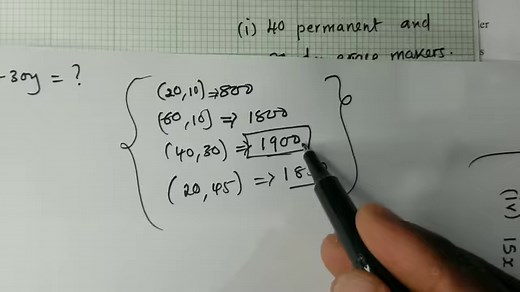 (i) 40 permanent and
makers.
-30y = ?
(20,10) ⇒ 800
(60,10] ⇒ 1800
(40,30) ⇒ 1900
(20,45) ⇒ 18
(iv) 15x